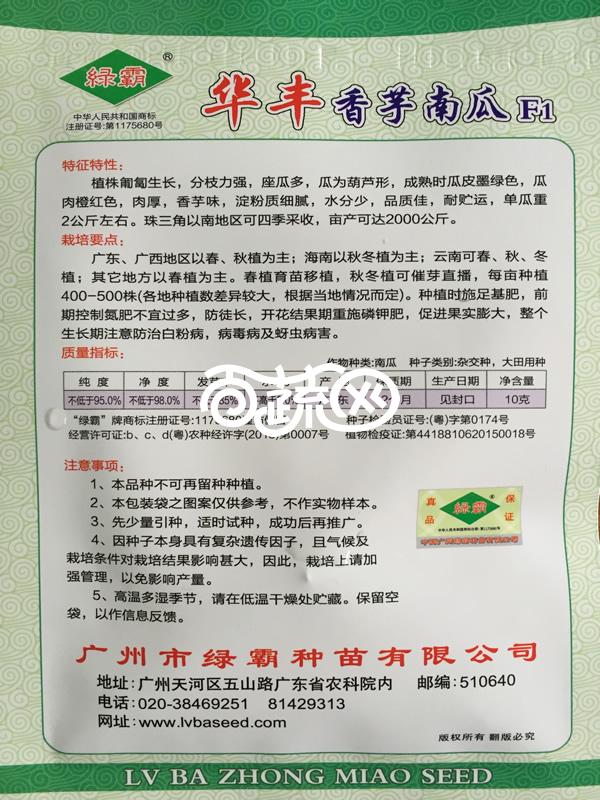 綠霸®
中华人民共和国商标
注册证号:第1175680号
华丰香芋南瓜F1
特征特性：
植株匍匐生长，分枝力强，座瓜多，瓜为葫芦形，成熟时瓜皮墨绿色，瓜
肉橙红色，肉厚，香芋味，淀粉质细腻，水分少，品质佳，耐贮运，单瓜重
2公斤左右。珠三角以南地区可四季采收，亩产可达2000公斤。
栽培要点：
广东、广西地区以春、秋植为主；海南以秋冬植为主；云南可春、秋、冬
植；其它地方以春植为主。春植育苗移植，秋冬植可催芽直播，每亩种植
400-500株(各地种植数差异较大，根据当地情况而定)。种植时施足基肥，前
期控制氮肥不宜过多，防徒长，开花结果期重施磷钾肥，促进果实膨大，整个
生长期注意防治白粉病，病毒病及蚜虫病害。
质量指标：
作物种类:南瓜 种子类别:杂交种，大田用种
纯度 净度 发芽 产 期 生产日期 净含量
不低于95.0% 不低于98.0% 不 85% 东 月 见封口 10克
百蔬网
“绿霸”牌商标注册证号:1175680 种子检验员证号:(粤)字第0174号
经营许可证:b、c、d(粤)农种经许字(2013)第0007号 植物检疫证:第4418810620150018号
注意事项：
1、本品种不可再留种种植。
2、本包装袋之图案仅供参考，不作实物样本。
3、先少量引种，适时试种，成功后再推广。
4、因种子本身具有复杂遗传因子，且气候及
栽培条件对栽培结果影响甚大，因此，栽培上请加
强管理，以免影响产量。
5、高温多湿季节，请在低温干燥处贮藏。保留空
袋，以作信息反馈。
真品
綠霸
保证
广州市绿霸种苗有限公司
地址:广州天河区五山路广东省农科院内 邮编:510640
电话:020-38469251 81429313
网址:www.lvbaseed.com
版权所有 翻版必究
LV BA ZHONG MIAO SEED